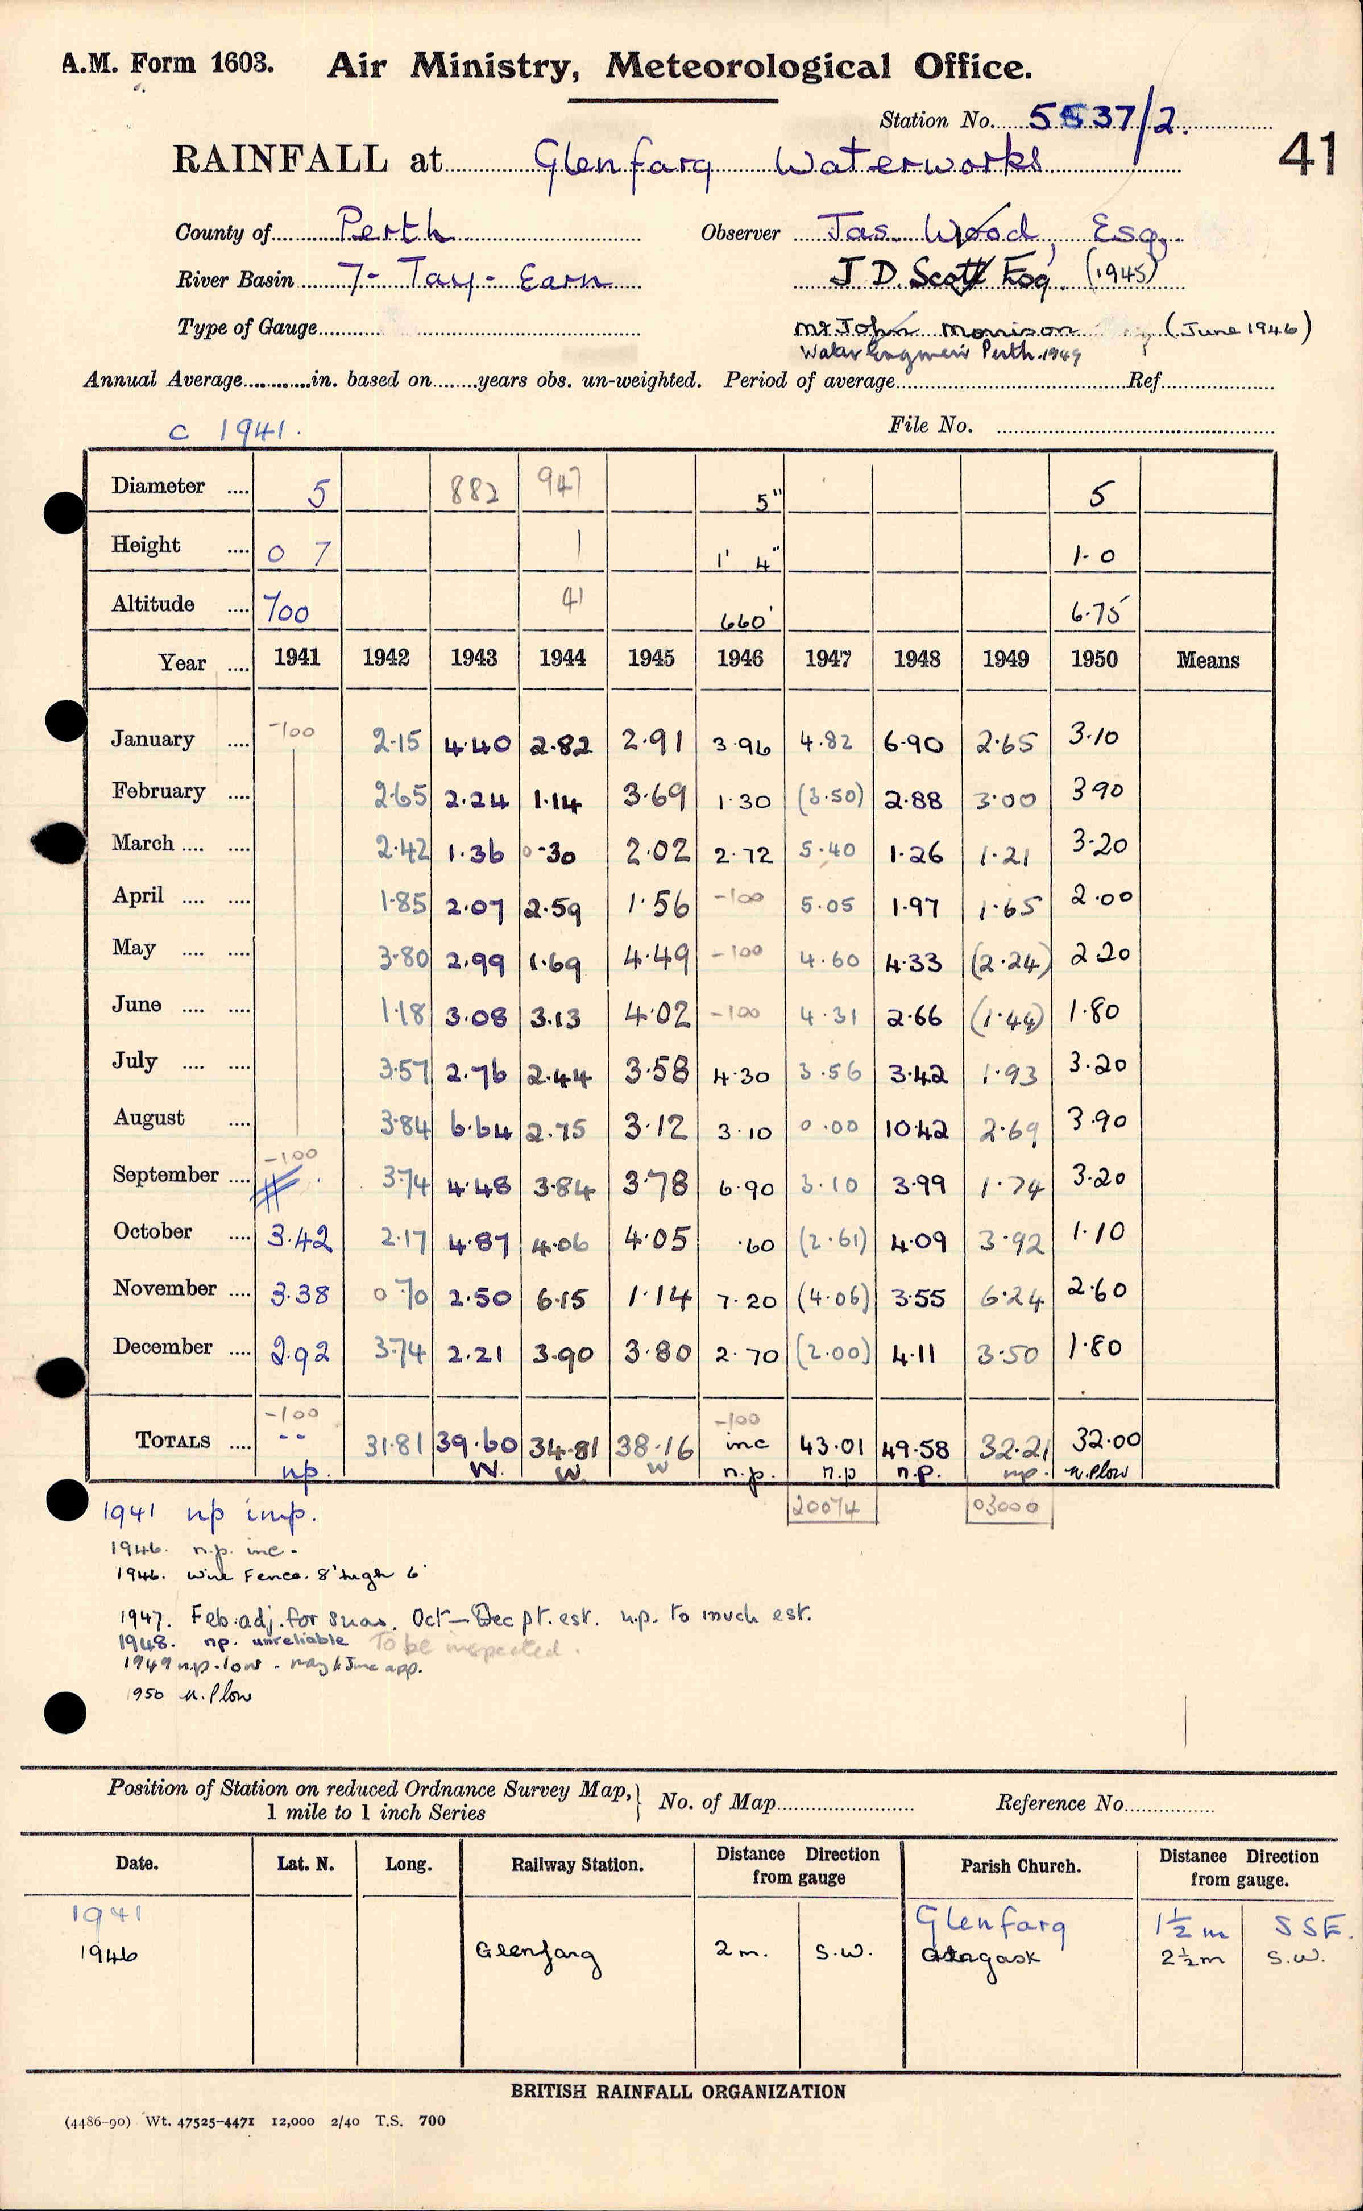 A.M. Form 1603. Air Ministry, Meteorological Office.
Station No. 5537/2.
41
RAINFALL at Glenfarg Waterworks
County of Perth Observer Jas. Wood, Esq.
River Basin 7 - Tay - Earn J D. Scott Esq. (1945)
Type of Gauge Mr John Morrison (June 1946)
Water Engineer Perth. 1949
Annual Average in. based on years obs. un-weighted. Period of average Ref
c 1941. File No.
Diameter 5 882 947 5" 5
Height 0 7 1 1' 4" 1.0
Altitude 700 41 660' 6.75
Year 1941 1942 1943 1944 1945 1946 1947 1948 1949 1950 Means
January -100 2.15 4.40 2.82 2.91 3.96 4.82 6.90 2.65 3.10
February 2.65 2.24 1.14 3.69 1.30 (3.50) 2.88 3.00 3.90
March 2.42 1.36 0.30 2.02 2.72 5.40 1.26 1.21 3.20
April 1.85 2.07 2.59 1.56 -100 5.05 1.97 1.65 2.00
May 3.80 2.99 1.69 4.49 -100 4.60 4.33 (2.24) 2.20
June 1.18 3.08 3.13 4.02 -100 4.31 2.66 (1.44) 1.80
July 3.57 2.76 2.44 3.58 4.30 3.56 3.42 1.93 3.20
August 3.84 6.64 2.75 3.12 3.10 0.00 10.42 2.69 3.90
September -100 3.74 4.48 3.84 3.78 6.90 3.10 3.99 1.74 3.20
October 3.42 2.17 4.87 4.06 4.05 .60 (2.61) 4.09 3.92 1.10
November 3.38 0.70 2.50 6.15 1.14 7.20 (4.06) 3.55 6.24 2.60
December 2.92 3.74 2.21 3.90 3.80 2.70 (2.00) 4.11 3.50 1.80
-100 -100
TOTALS -- 31.81 39.60 34.81 38.16 inc 43.01 49.58 32.21 32.00
np. W. W W n.p. n.p n.p. np. n.plow
20074 03000
1941 np imp.
1946. n.p. inc.
1946. Wire Fence. 8' high 6'
1947. Feb. adj. for snow. Oct-Dec pt. est. n.p. to much est.
1948. np. unreliable To be inspected.
1949 n.p. low - May & June app.
1950 n.plow
Position of Station on reduced Ordnance Survey Map,
1 mile to 1 inch Series
No. of Map Reference No.
Date. Lat. N. Long. Railway Station. Distance Direction from gauge Parish Church. Distance Direction from gauge.
1941 Glenfarg 1½ m SSE.
1946 Glenfarg 2 m. S.W. Arngask 2½m S.W.
BRITISH RAINFALL ORGANIZATION
(4486-90) Wt. 47525-4471 12,000 2/40 T.S. 700